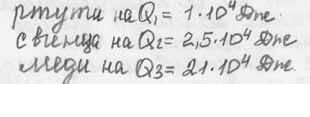 ртути на Q₁ = 1·10⁴ Дже.
свинца на Q₂ = 2,5·10⁴ Дже
меди на Q₃ = 21·10⁴ Дже.